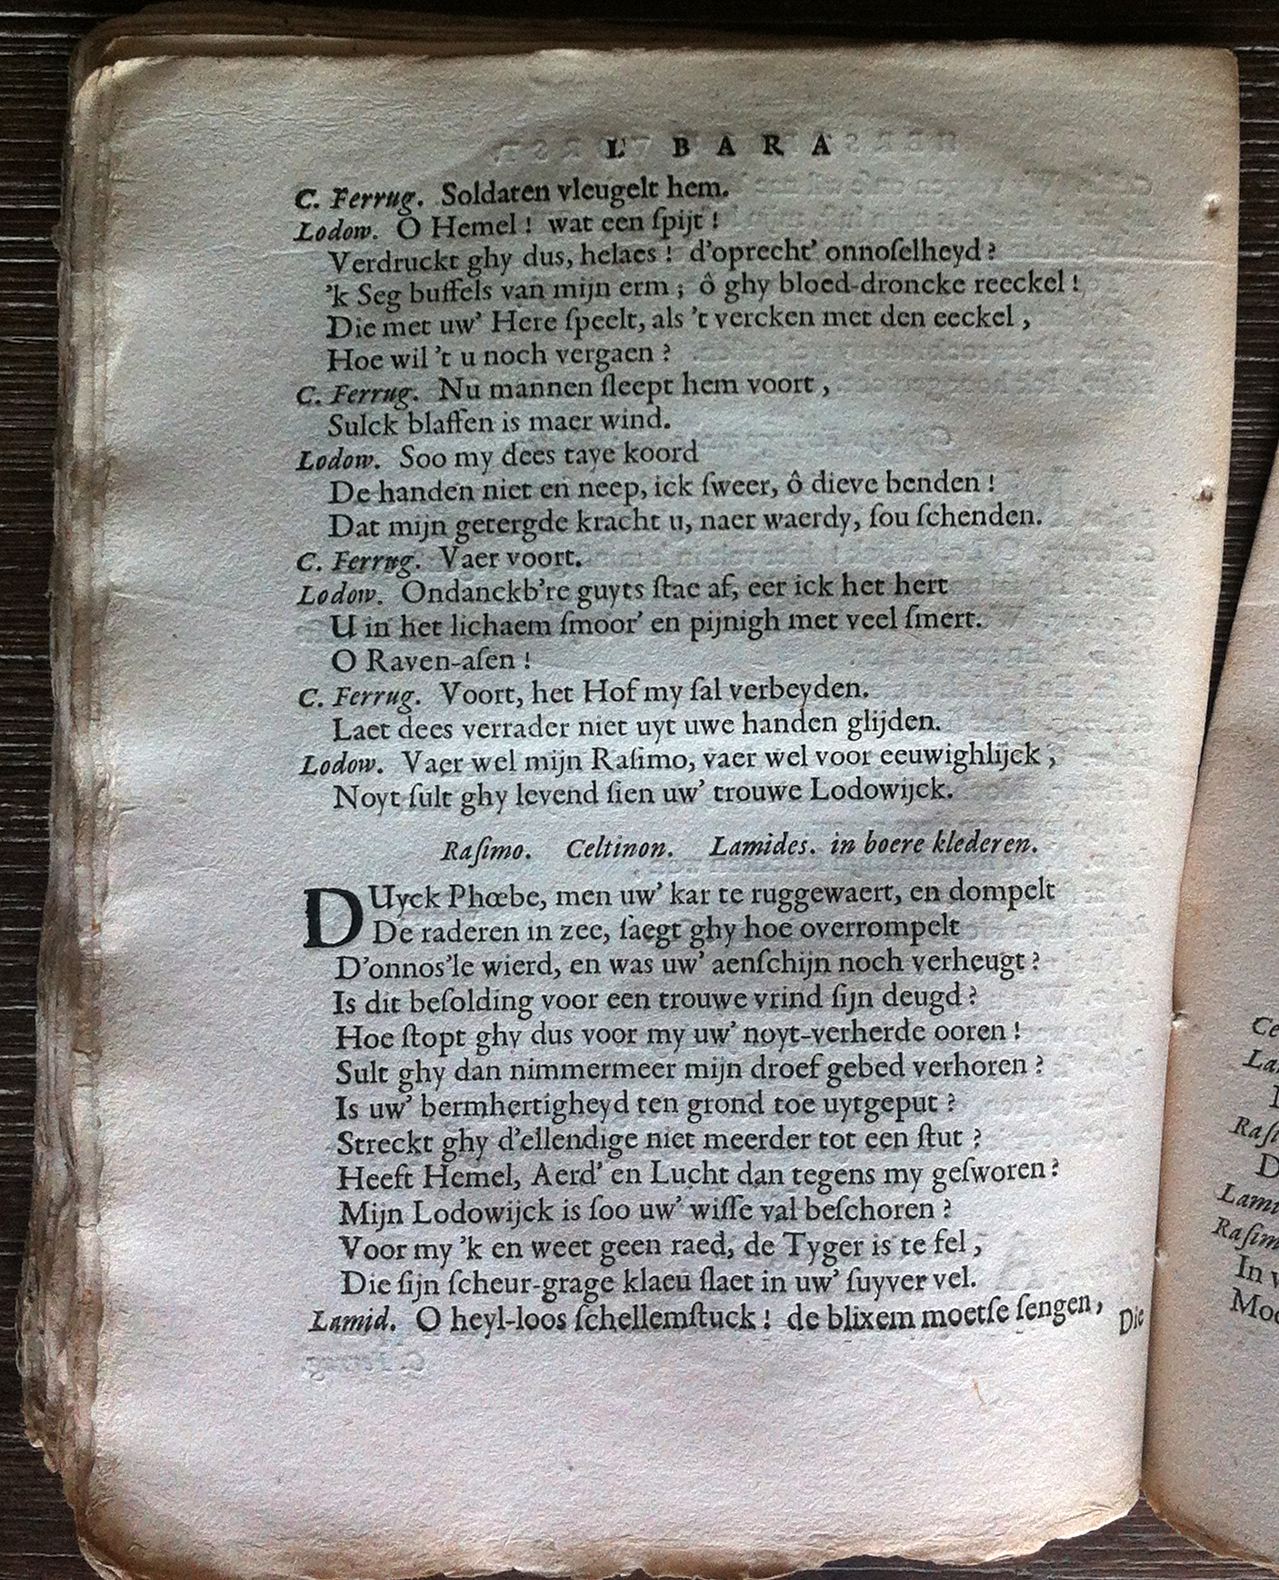 L' BARA
C. Ferrug. Soldaten vleugelt hem.
Lodow. O Hemel! wat een ſpijt!
Verdruckt ghy dus, helaes! d'oprecht' onnoſelheyd?
'k Seg buffels van mijn erm; ô ghy bloed-droncke reeckel!
Die met uw' Here ſpeelt, als 't vercken met den eeckel,
Hoe wil 't u noch vergaen?
C. Ferrug. Nu mannen ſleept hem voort,
Sulck blaffen is maer wind.
Lodow. Soo my dees taye koord
De handen niet en neep, ick ſweer, ô dieve benden!
Dat mijn getergde kracht u, naer waerdy, ſou ſchenden.
C. Ferrug. Vaer voort.
Lodow. Ondanckb're guyts ſtae af, eer ick het hert
U in het lichaem ſmoor' en pijnigh met veel ſmert.
O Raven-aſen!
C. Ferrug. Voort, het Hof my ſal verbeyden.
Laet dees verrader niet uyt uwe handen glijden.
Lodow. Vaer wel mijn Raſimo, vaer wel voor eeuwighlijck,
Noyt ſult ghy levend ſien uw' trouwe Lodowijck.
Raſimo. Celtinon. Lamides. in boere klederen.
DUyck Phœbe, men uw' kar te ruggewaert, en dompelt
De raderen in zee, ſaegt ghy hoe overrompelt
D'onnos'le wierd, en was uw' aenſchijn noch verheugt?
Is dit beſolding voor een trouwe vrind ſijn deugd?
Hoe ſtopt ghy dus voor my uw' noyt-verherde ooren!
Sult ghy dan nimmermeer mijn droef gebed verhoren?
Is uw' bermhertigheyd ten grond toe uytgeput?
Streckt ghy d'ellendige niet meerder tot een ſtut?
Heeft Hemel, Aerd' en Lucht dan tegens my geſworen?
Mijn Lodowijck is ſoo uw' wiſſe val beſchoren?
Voor my 'k en weet geen raed, de Tyger is te fel,
Die ſijn ſcheur-grage klaeu ſlaet in uw' ſuyver vel.
Lamid. O heyl-loos ſchellemſtuck! de blixem moetſe ſengen,
Die